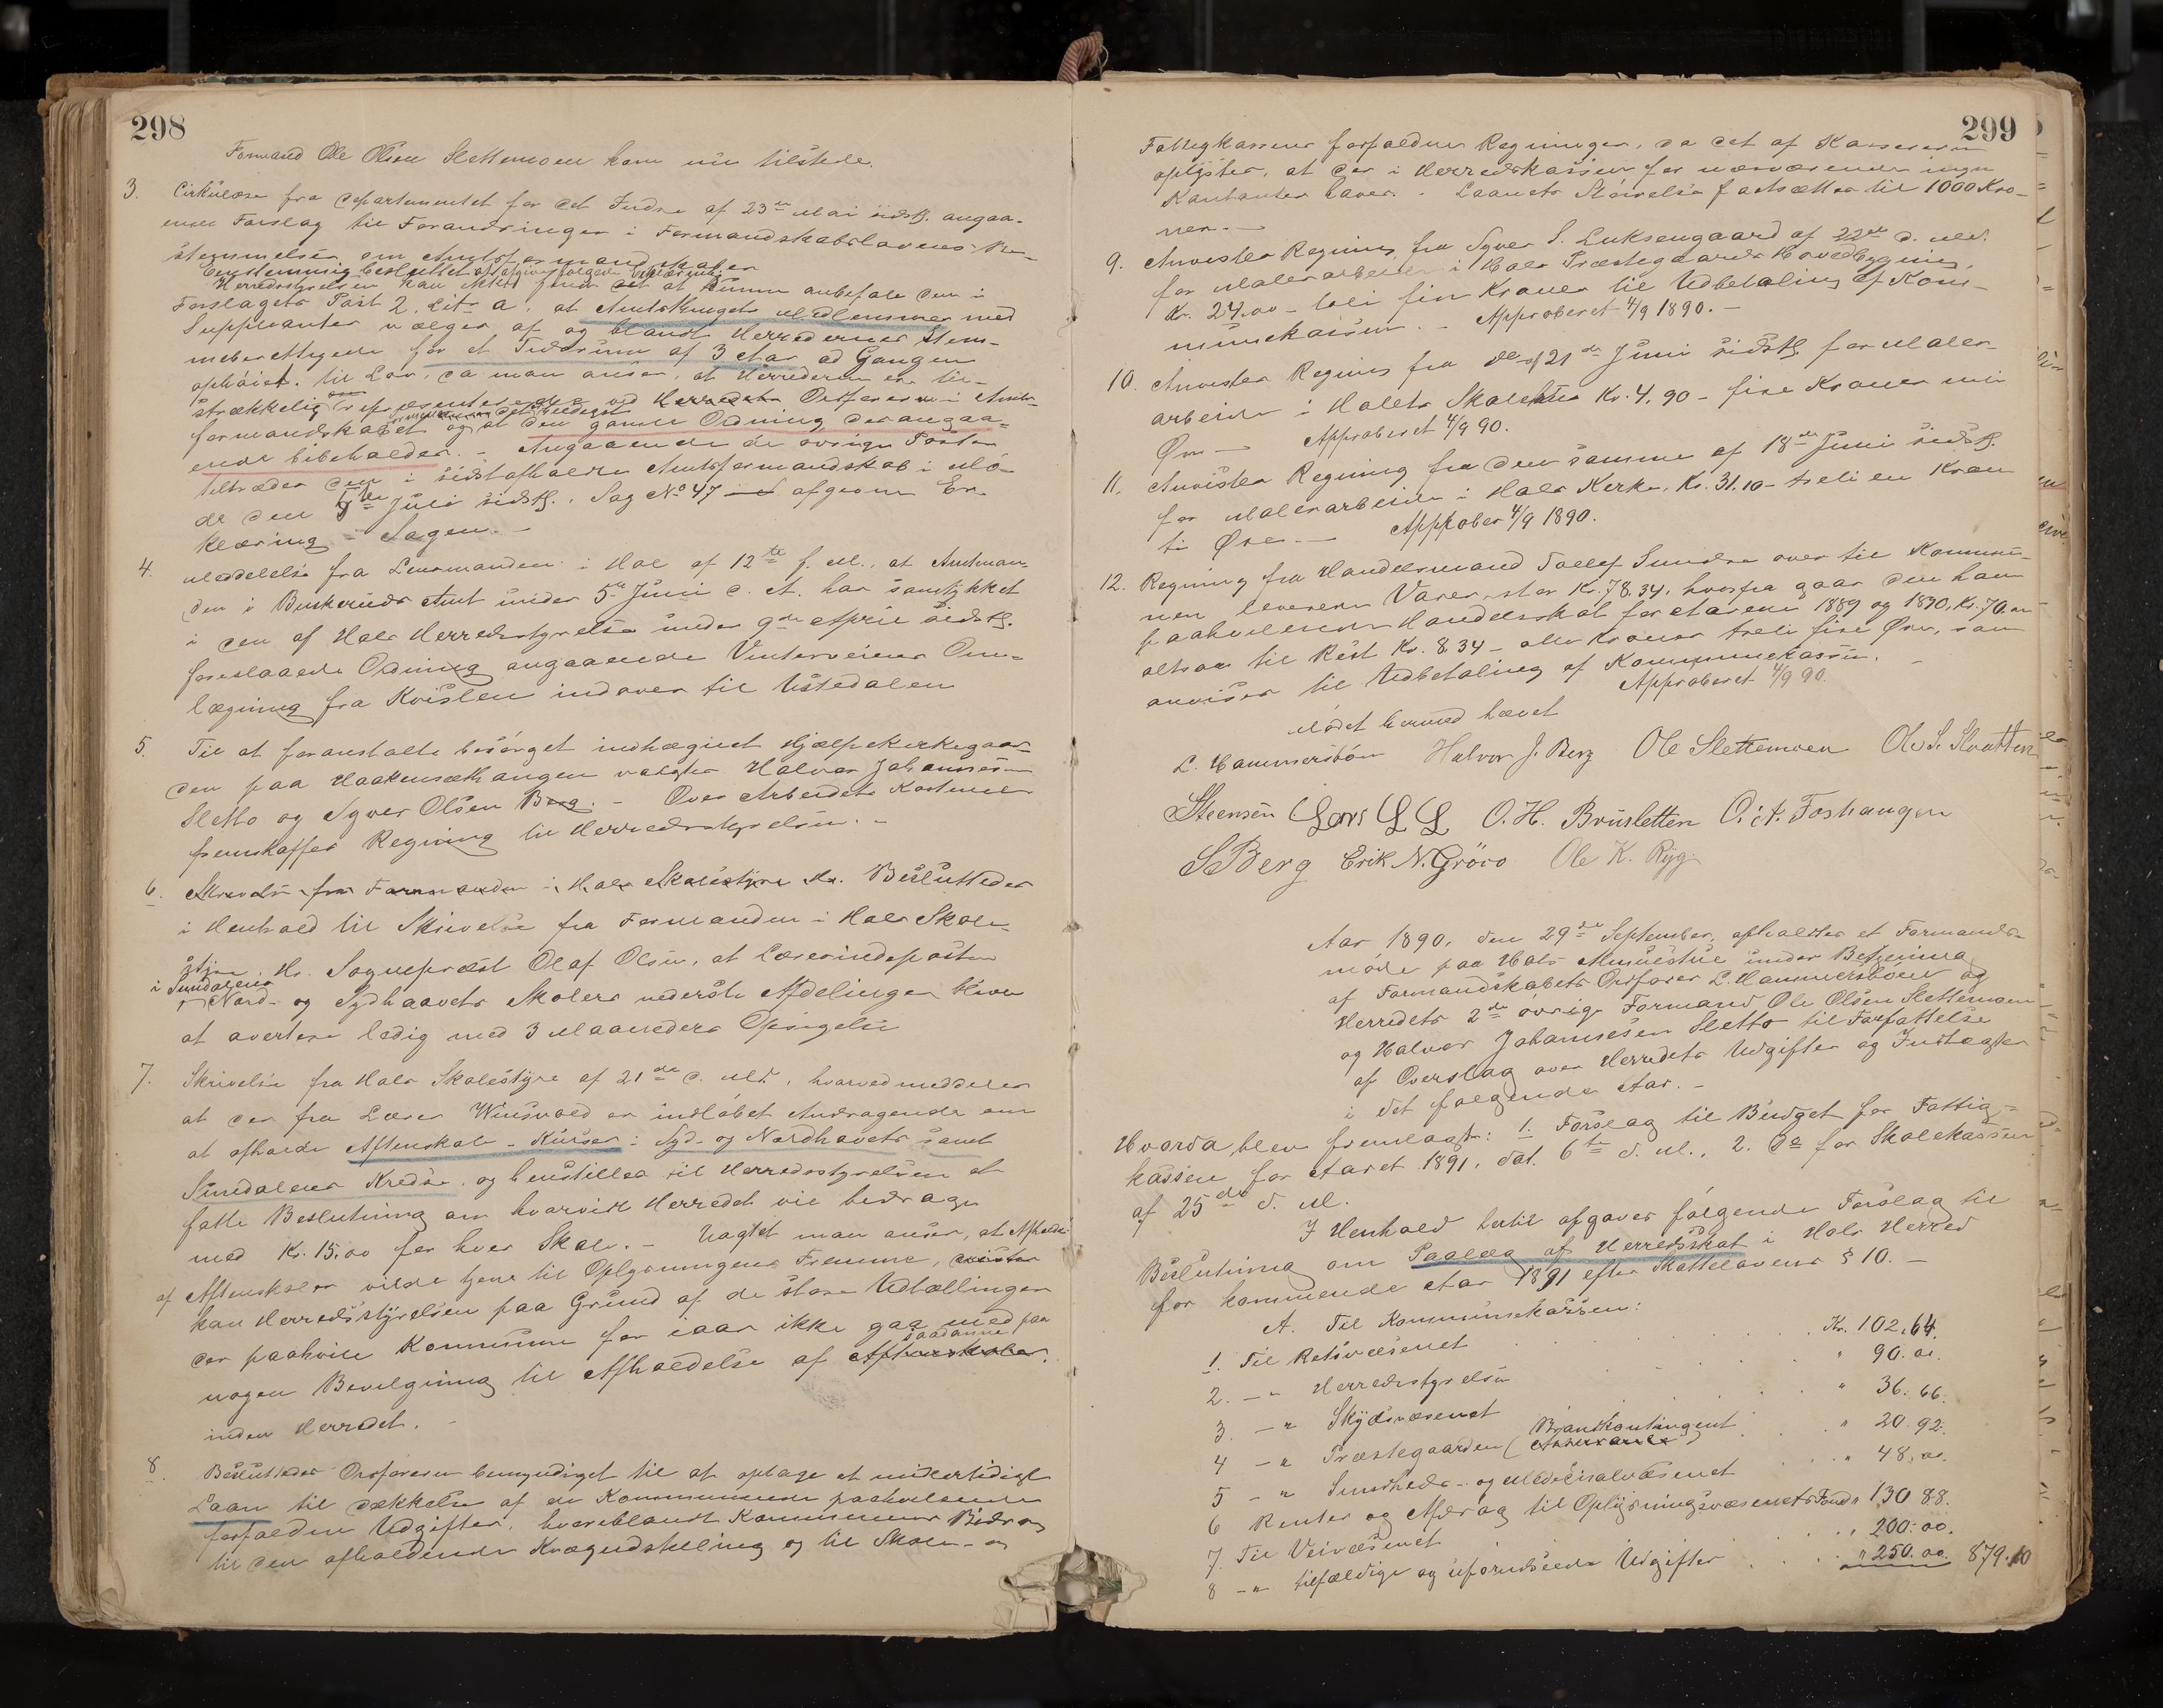 298
Formand Ole Olsen Slettemoen kom nu tilstede.
3. Cirkulære fra Departementet for det Indre af 23de Mai sidstl. angaa-
ende Forslag til Forandringer i Formandskabslovens Be-
stemmelser om Amtsformandskaber
Eenstemmig besluttet at afgive følgende Erklæring:
Herredsstyrelsen kan ikke finde det at kunne anbefale den i
Forslagets Post 2, Lit. a, at Amtsthingets Medlemmer med
Suppleanter vælges af og blandt Herredernes Stem-
meberettigede for et Tidsrum af 3 Aar ad Gangen
ophøiet til Lov, da man anser, at Herrederne er til-
strækkelig repræsenterede ved Herredets Ordførere i Amts-
formandskabet og at den gamle Ordning derangaa-
ende bibeholdes. - Angaaende de øvrige Poster
tiltrædes den i sidstafholdte Amtsformandskab i Mø-
de den Juli sidstl. Sag No 47 afgivne Er-
klæring - Sagen. -
4. Meddelelse fra Lensmanden i Hol af 12te f. M., at Amtman-
den i Buskeruds Amt under 5te Juni d. A. har samtykket
i den af Hols Herredsstyrelse under 9de April sidstl.
foreslaaede Ordning angaaende Vinterveiens Om-
lægning fra Kvislen indover til Ustedalen
5. Til at foranstalte besørget indhegnet Hjælpekirkegaar-
den paa Haakensæthaugen valgtes Halvor Johannesen
Sletto og Syver Olsen Berg. - Over Arbeidets Kostende
fremskaffes Regning til Herredsstyrelsen. -
6. Skrivelse fra Formanden i Hols Skolestyre Hr. Besluttedes
i Henhold til Skrivelse fra Formanden i Hols Skole-
styre, Hr. Sognepræst Olaf Olsen, at Lærerindeposten
i Sundalens
Nord- og Sydhaavets Skolers nederste Afdelinger bliver
at avertere ledig med 3 Maaneders Opsigelse
7. Skrivelse fra Hols Skolestyre af 21de d. Md., hvorved meddeles
at der fra Lærer Winsvold er indløbet Andragende om
at afholde Aftenskole-Kurser i Syd- og Nordhavets samt
Sundalens Kredse, og henstilles til Herredsstyrelsen at
fatte Beslutning om hvorvidt Herredet vil bidrage
med Kr. 15,00 for hver Skole. - Uagtet man anser, at Afholdelse
af Aftenskoler vilde tjene til Oplysningens Fremme,
kan Herredsstyrelsen paa Grund af de store Udtællinger
der paahvile Kommunen for iaar ikke gaa med paa
nogen Bevilgning til Afholdelse af saadanne Aftenskoler
inden Herredet. -
8. Besluttedes Ordføreren bemyndiget til at optage et midlertidigt
Laan til Dækkelse af de Kommunen paahvilende
forfaldne Udgifter, hvoriblandt Kommunens Bidrag
til den afholdende Kvægudstilling og til Skole- og
299
Fattigkassens forfaldne Regninger, da det af Kassereren
oplystes, at der i Herredskassen for nærværende ingen
Kontanter haves. - Laanets Størrelse fastsættes til 1000 Kro-
ner. -
9. Anvistes Regning fra Syver S. Luksengaard af 22de d. Md.
for Malerarbeide i Hols Præstegaards Hovedbygning,
Kr. 24.00 - toti fire Kroner til Udbetaling af Kom-
munekassen. - Approberet 4/9 1890. -
10. Anvistes Regning fra af 21de Juni sidstl. for Maler-
arbeide i Holets Skole Kr. 4,90 - fire Kroner niti
Øre - Approberet 4/9 90.
11. Anvistes Regning fra den samme af 18de Juni sidstl.
for Malerarbeide i Hols Kirke, Kr. 31.10 - treti en Kroner
ti Øre. - Approber 4/9 1890.
12. Regning fra Handelsmand Tollef Sundre over til Kommu-
nen leverede Varer, stor Kr. 78.34, hvorfra gaar den ham
paahvilende Handelsskat for Aarene 1889 og 1890, Kr. 70.00
altsaa til Rest Kr. 8.34 - otte Kroner treti fire Øre, som
anvises til Udbetaling af Kommunekassen. -
Approberet 4/9 90.
Mødet hermed hævet
L. Hammersbøen Halvor J. Berg Ole Slettemoen Ole S. Slaatten
Steensen Lars L L O. H. Brusletten O. A. Foshaugen
S Berg Erik N. Grøvo Ole K. Ryg
Aar 1890, den 29de September, afholdtes et Formands-
møde paa Hols Amuestue under Bestyrelse
af Formandskabets Ordfører L. Hammersbøen og
Herredets 2de øvrige Formænd Ole Olsen Slettemoen
og Halvor Johannesen Sletto til Forfattelse
af Overslag over Herredets Udgifter og Indtægter
i det følgende Aar. -
Hvorda blev fremlagt: 1. Forslag til Budget for Fattig-
kassen for Aaret 1891, dat. 6te d. M., 2. Do for Skolekassen
af 25de d. M.
I Henhold hertil afgaves følgende Forslag til
Beslutning om Paalæg af Herredsskat i Hols Herred
for kommende Aar 1891 efter Skattelovens § 10. -
A. Til Kommunekassen:
1. Til Retsvæsenet Kr. 102,64.
2. - " Herredsstyrelsen " 90.00.
3. - " Skydsvæsenet " 36.66.
4 - " Præstegaarden (Brandkontingent) " 20.92.
5 - " Sundheds- og Medicinalvæsenet " 48,00.
6 Renter og Afdrag til Oplysningsvæsenets Fond " 130 88.
7. Til Veivæsenet " 200.00.
8 - " tilfældige og uforudseede Udgifter " 250.00. 879.10